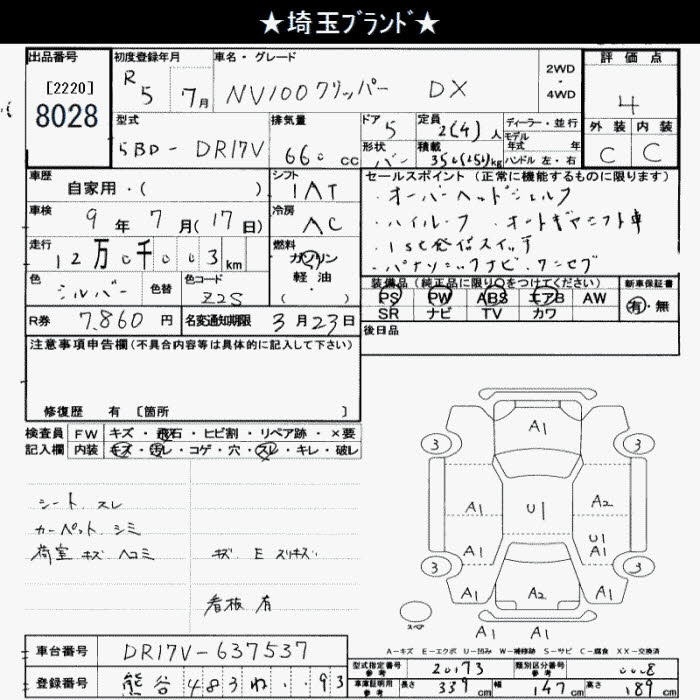 ★埼玉ﾌﾞﾗﾝﾄﾞ★
出品番号
[2220]
8028
初度登録年月
R 5 7月
車名・グレード
NV100クリッパー DX
2WD
・
4WD
評価点
4
外装 内装
C C
型式
5BD-DR17V
排気量
660 cc
ドア
5
形状
バン
定員
2(4)人
積載
350(250)kg
ディーラー・並行
モデル
年式 年
ハンドル 左・右
車歴
自家用・( )
シフト
IAT
車検
9年7月(17日)
冷房
AC
走行
12万0千003km
燃料
ガソリン
軽油
( ・ )
色
シルバー
色替
色コード
Z2S
R券
7,860円
名変通知期限
3月23日
セールスポイント(正常に機能するものに限ります)
・オーバーヘッドシェルフ
・ハイルーフ ・オートギヤシフト車
・1st発信スイッチ
・パナソニックナビ・ワンセグ
装備品(純正品に限り○をつけてください)
PS PW ABS エアB AW
SR ナビ TV カワ
新車保証書
有・無
後日品
注意事項申告欄(不具合内容等は具体的に記入して下さい)
修復歴 有 [箇所 ]
検査員
記入欄
FW キズ・飛石・ヒビ割・リペア跡・×要
内装 キズ・汚レ・コゲ・穴・スレ・キレ・破レ
シート スレ
カーペット シミ
荷室 キズ ヘコミ キズ E スリキズ
看板 有
A1
3 3
A1 U1 A2
A1 U1 A1
3 3
A1 A2 A1
スペア
A1 A1
A-キズ E-エクボ U-凹み W-補修跡 S-サビ C-腐食 XX-交換済
車台番号
DR17V-637537
登録番号
熊谷 483 ね ・・93
型式指定番号
参考
20173
類別区分番号
参考
0008
車庫証明用
参考
長さ 339cm 幅 147cm 高さ 189cm